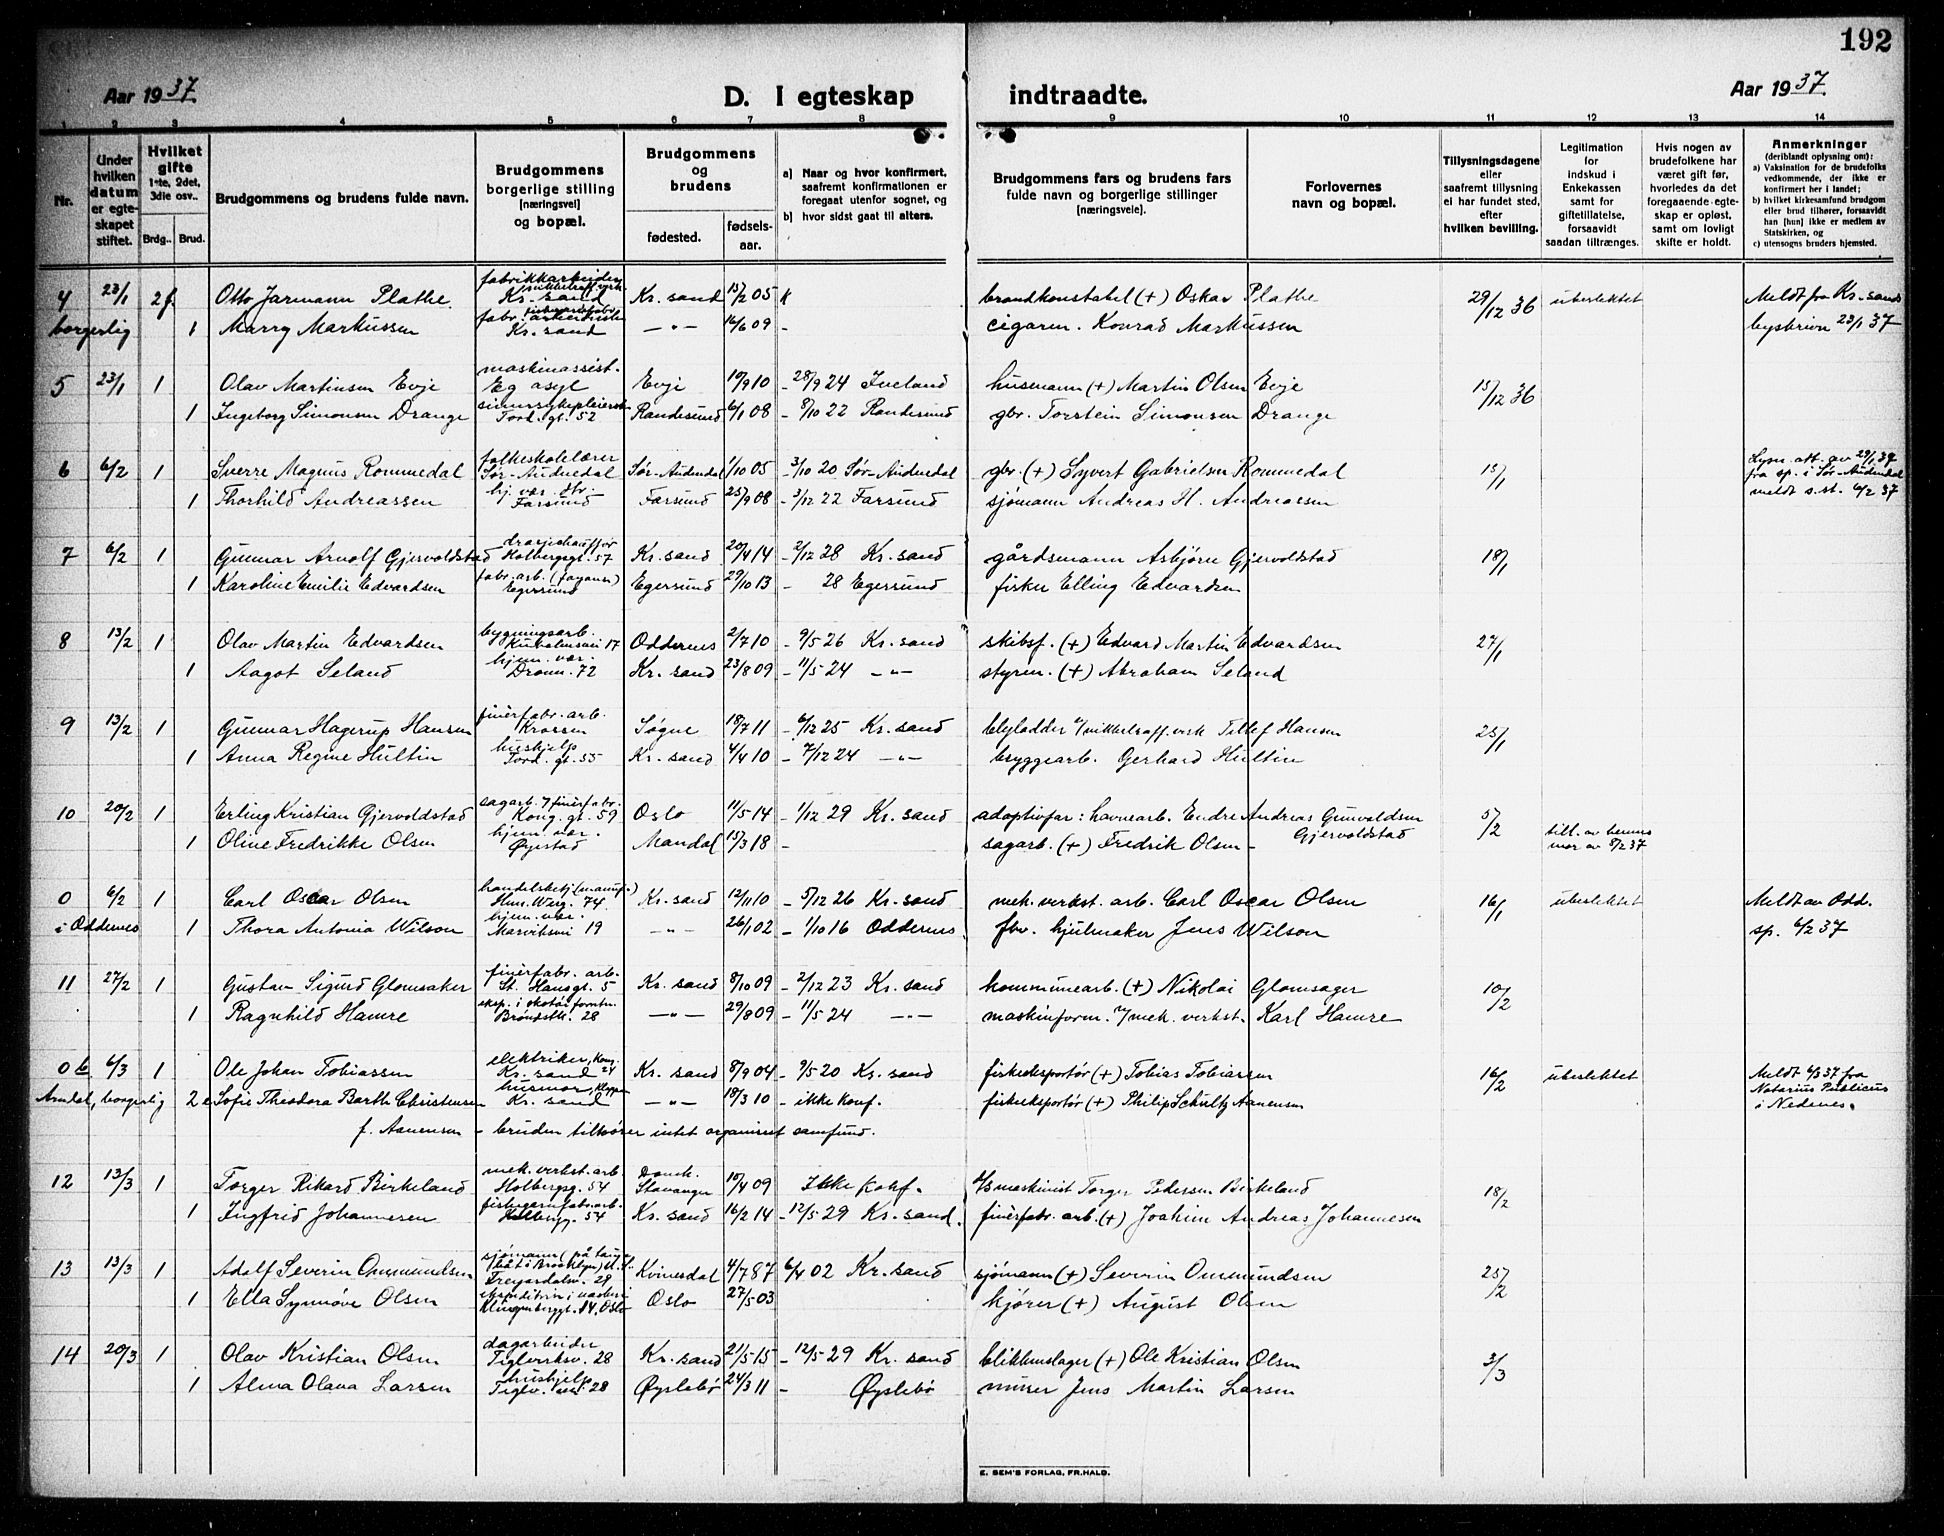 192
Aar 1937
D. I egteskap indtraadte.
Aar 1937.
1 2 3 4 5 6 7 8 9 10 11 12 13 14
Nr.
Under hvilken datum er egteskapet stiftet.
Hvilket gifte 1ste, 2det, 3die osv..
Brdg.. Brud.
Brudgommens og brudens fulde navn.
Brudgommens borgerlige stilling [næringsvei] og bopæl.
Brudgommens og brudens
fødested. fødselsaar.
a) Naar og hvor konfirmert, saafremt konfirmationen er foregaat utenfor sognet, og
b) hvor sidst gaat til alters.
Brudgommens fars og brudens fars fulde navn og borgerlige stillinger [næringsveie].
Forlovernes navn og bopæl.
Tillysningsdagene eller saafremt tillysning ei har fundet sted, efter hvilken bevilling.
Legitimation for indskud i Enkekassen samt for giftetillatelse, forsaavidt saadan tiltrænges.
Hvis nogen av brudefolkene har været gift før, hvorledes da det foregaaende egteskap er opløst, samt om lovligt skifte er holdt.
Anmerkninger (deriblandt oplysning om):
a) Vaksination for de brudefolks vedkommende, der ikke er konfirmert her i landet;
b) hvilket kirkesamfund brudgom eller brud tilhører, forsaavidt han [hun] ikke er medlem av Statskirken, og
c) utensogns bruders hjemsted.
4 23/1 2f. Otto Jarmann Plathe fabrikkarbeider Kr. sand Kr. sand 15/2 05 K brandkonstabel (+) Oskar Plathe 29/12 36 uberlektet Meldt fra Kr. sand
borgerlig 1 Marry Markussen Kr. sand — " — 16/6 09 - cigarm. Konrad Markussen byskriver 23/1 37
5 23/1 1 Olav Martinsen Evje maskinassist. Eg asyl Evje 10/9 10 - 28/9 24 Iveland husmann (+) Martin Olsen Evje 15/12 36
1 Ingeborg Simonsen Drange sinnssykepleierske Tord. gt. 52 Randesund 6/1 08 - 8/10 22 Randesund gbr. Torstein Simonsen Drange
6 6/2 1 Sverre Magnus Rommedal folkeskolelærer Sør-Audnedal Sør-Audnedal 1/10 05 - 3/10 20 Sør-Audnedal gbr. (+) Syvert Gabrielsen Rommedal 15/1 Lysn. att. av 29/1 37 fra sp. i Sør-Audnedal
1 Thorhild Andreassen hj. vær. Farsund Farsund 25/9 08 - 3/12 22 Farsund sjømann Andreas H. Andreassen meldt s. st. 6/2 37
7 6/2 1 Gunnar Arnolf Gjervoldstad drosjechauffør Holbergsgt. 57 Kr. sand 20/4 14 - 2/12 28 Kr. sand gårdsmann Asbjørn Gjervoldstad 18/1
1 Karoline Emilie Edvardsen fabr. arb. (fayanse) Egersund Egersund 29/10 13 - 28 Egersund fisker Elling Edvardsen
8 13/2 1 Olav Martin Edvardsen bygningsarb. Kuholmsvei 17 Oddernes 2/7 10 - 9/5 26 Kr. sand skibsf. (+) Edvard Martin Edvardsen 27/1
1 Aagot Seland hjem. vær. Dronn. 72 Kr. sand 23/8 09 - 11/5 24 — " — styrm. (+) Abraham Seland
9 13/2 1 Gunnar Hagerup Hansen finerfabr. arb. Krossen Søgne 18/7 11 - 6/12 25 Kr. sand blylodder v/nikkelraff. verk Tellef Hansen 25/1
1 Anna Regine Hultin hushjelp Tord. gt. 55 Kr. sand 4/4 10 - 7/12 24 — " — bryggearb. Gerhard Hultin
10 20/2 1 Erling Kristian Gjervoldstad sagarb. v/finerfabr. Kong. gt. 59 Oslo 11/5 14 - 1/12 29 Kr. sand adoptivfar: havnearb. Endre Andreas Gunvaldsen Gjervoldstad 5/2
1 Olive Fredrikke Olsen hjem. vær. Øyestad Mandal 15/3 18 - sagarb. (+) Fredrik Olsen - till. av hennes mor av 5/2 37
0 6/2 1 Carl Oscar Olsen handelsbetj. (manuf.) Hnr. Werg. 74 Kr. sand 12/11 10 - 5/12 26 Kr. sand mek. verkst. arb. Carl Oscar Olsen 16/1 uberlektet Meldt av Odd.
i Oddernes 1 Thora Antonia Wilson hjem. vær. Marviksvei 19 — " — 26/1 02 - 1/10 16 Oddernes. fbv. hjulmaker Jens Wilson sp. 6/2 37
11 27/2 1 Gustav Sigurd Glomsaker finerfabr. arb. St. Hansgt. 5 Kr. sand 8/10 09 - 2/12 23 Kr. sand kommunearb. (+) Nikolai Glomsager 10/2
1 Ragnhild Hamre eksp. i skotøiforretn. Brøndstk. 28 — " — 29/8 09 - 11/5 24 — " — maskinform. v/mek. verkst. Karl Hamre
0 b 6/3 1 Ole Johan Tobiassen elektriker, Kong. 24 Kr. sand Kr. sand 8/9 04 - 9/5 20 Kr. sand fiskeeksportør (+) Tobias Tobiassen 16/2 uberlektet Meldt 6/3 37 fra
Arendal, borgerlig 2 Sofie Theodora Barth Christensen husmor, Kr. sand — " — 18/3 10 - ikke konf. fiskeeksportør (+) Philip Schultz Aanensen Notarius Publicus i Nedenes.
f. Aanensen - bruden tilhører intet organisert samfund.
12 13/3 1 Torger Rikard Birkeland mek. verkst. arb. Holbergsg. 54 Stavanger 10/4 09 Ikke konf. maskinist Torger Pedersen Birkeland 18/2
1 Ingfrid Johannesen fiskegarnfabr.arb. Holbergg. 54 Kr. sand 16/2 14 - 12/5 29 Kr. sand. finerfabr. arb. (+) Joakim Andreas Johannesen
13 13/3 1 Adolf Severin Ommundsen sjømann (på Brooklyn) 29 Kvinesdal 4/7 87 6/4 02 Kr. sand sjømann (+) Severin Ommundsen 25/2
1 Ella Synnøve Olsen Klingenberggt. 14, Oslo Oslo 27/5 03 kjører (+) August Olsen
14 20/3 1 Olav Kristian Olsen dagarbeider Teglverksv. 28 Kr. sand 21/5 15 - 12/5 29 Kr. sand blikkenslager (+) Ole Kristian Olsen 3/3
1 Alma Olava Larsen hushjelp Teglv. vei 28 Øyslebø 24/3 11 - Øyslebø murer Jens Martin Larsen
E. SEM'S FORLAG, FR.HALD.